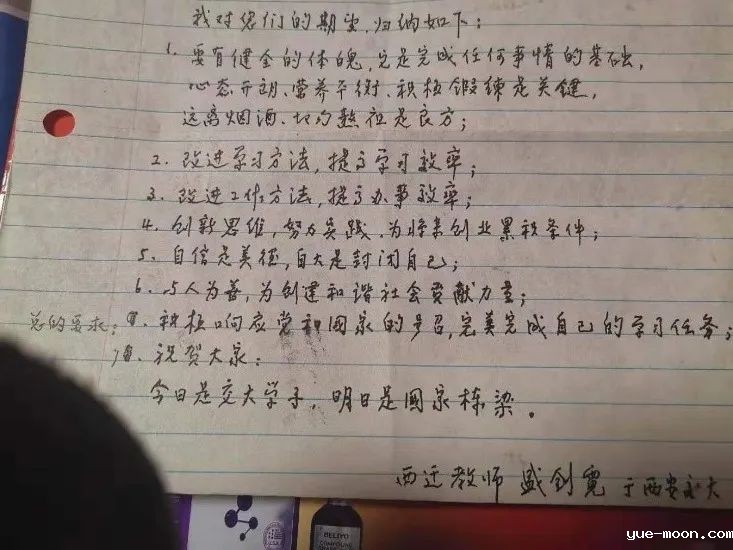 我对您们的期望，归纳如下：
1. 要有健全的体魄，它是完成任何事情的基础，
心态开朗、营养平衡、积极锻练是关键，
远离烟酒、切勿熬夜是良方；
2. 改进学习方法，提高学习效率；
3. 改进工作方法，提高办事效率；
4. 创新思维，努力实践，为将来创业累积条件；
5. 自信是美德，自大是封闭自己；
6. 与人为善，为创建和谐社会贡献力量；
总的要求：7. 积极响应党和國家的号召，完美完成自己的学习任务；
8. 祝贺大家：
今日是交大学子，明日是國家栋梁。
西迁教师 盛剑霓 于西安交大
BELIYO
COMPOUND
yue-moon.com